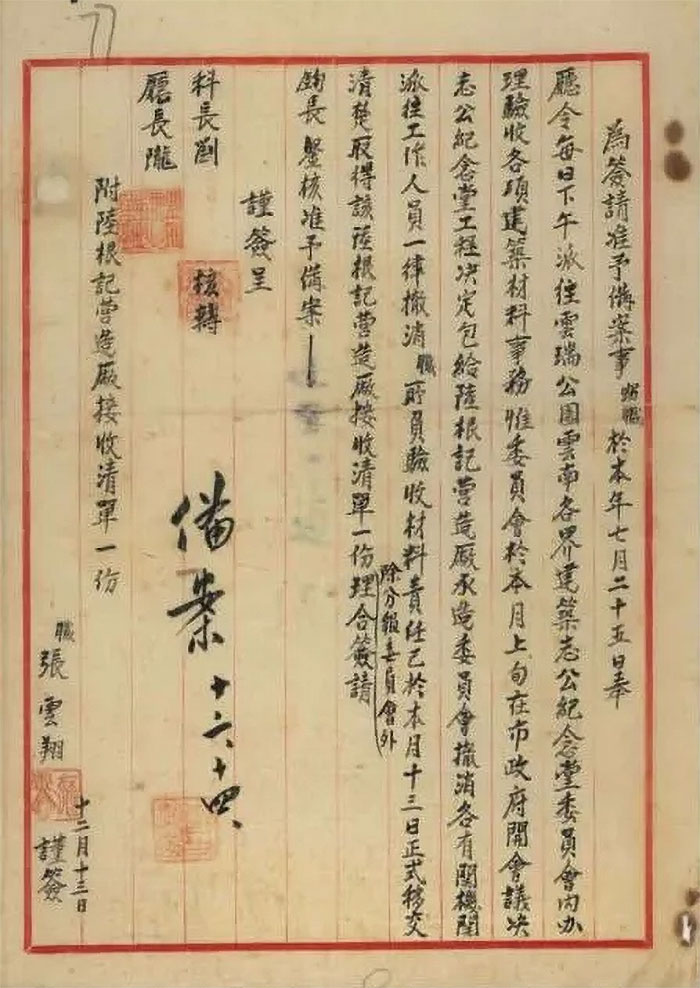 為簽請准予備案事 竊職 於本年七月二十五日奉
廳令每日下午派往雲瑞公園雲南各界建築志公紀念堂委員會內办
理驗收各項建築材料事務惟委員會於本月上旬在市政府開會議决
志公紀念堂工程决定包給陸根記营造廠承造委員會撤消各有關機関
派往工作人員一律撤消職所員驗收材料責任已於本月十三日正式移交
除分報委員會外
清楚取得該陸根記营造廠接收清單一份理合簽請
鈞長鑒核准予備案
謹簽呈
科長劉 核轉
廳長隴
附陸根記营造廠接收清單一份
備案 十二、十四
職張雲翔 謹簽
十二月十三日
77